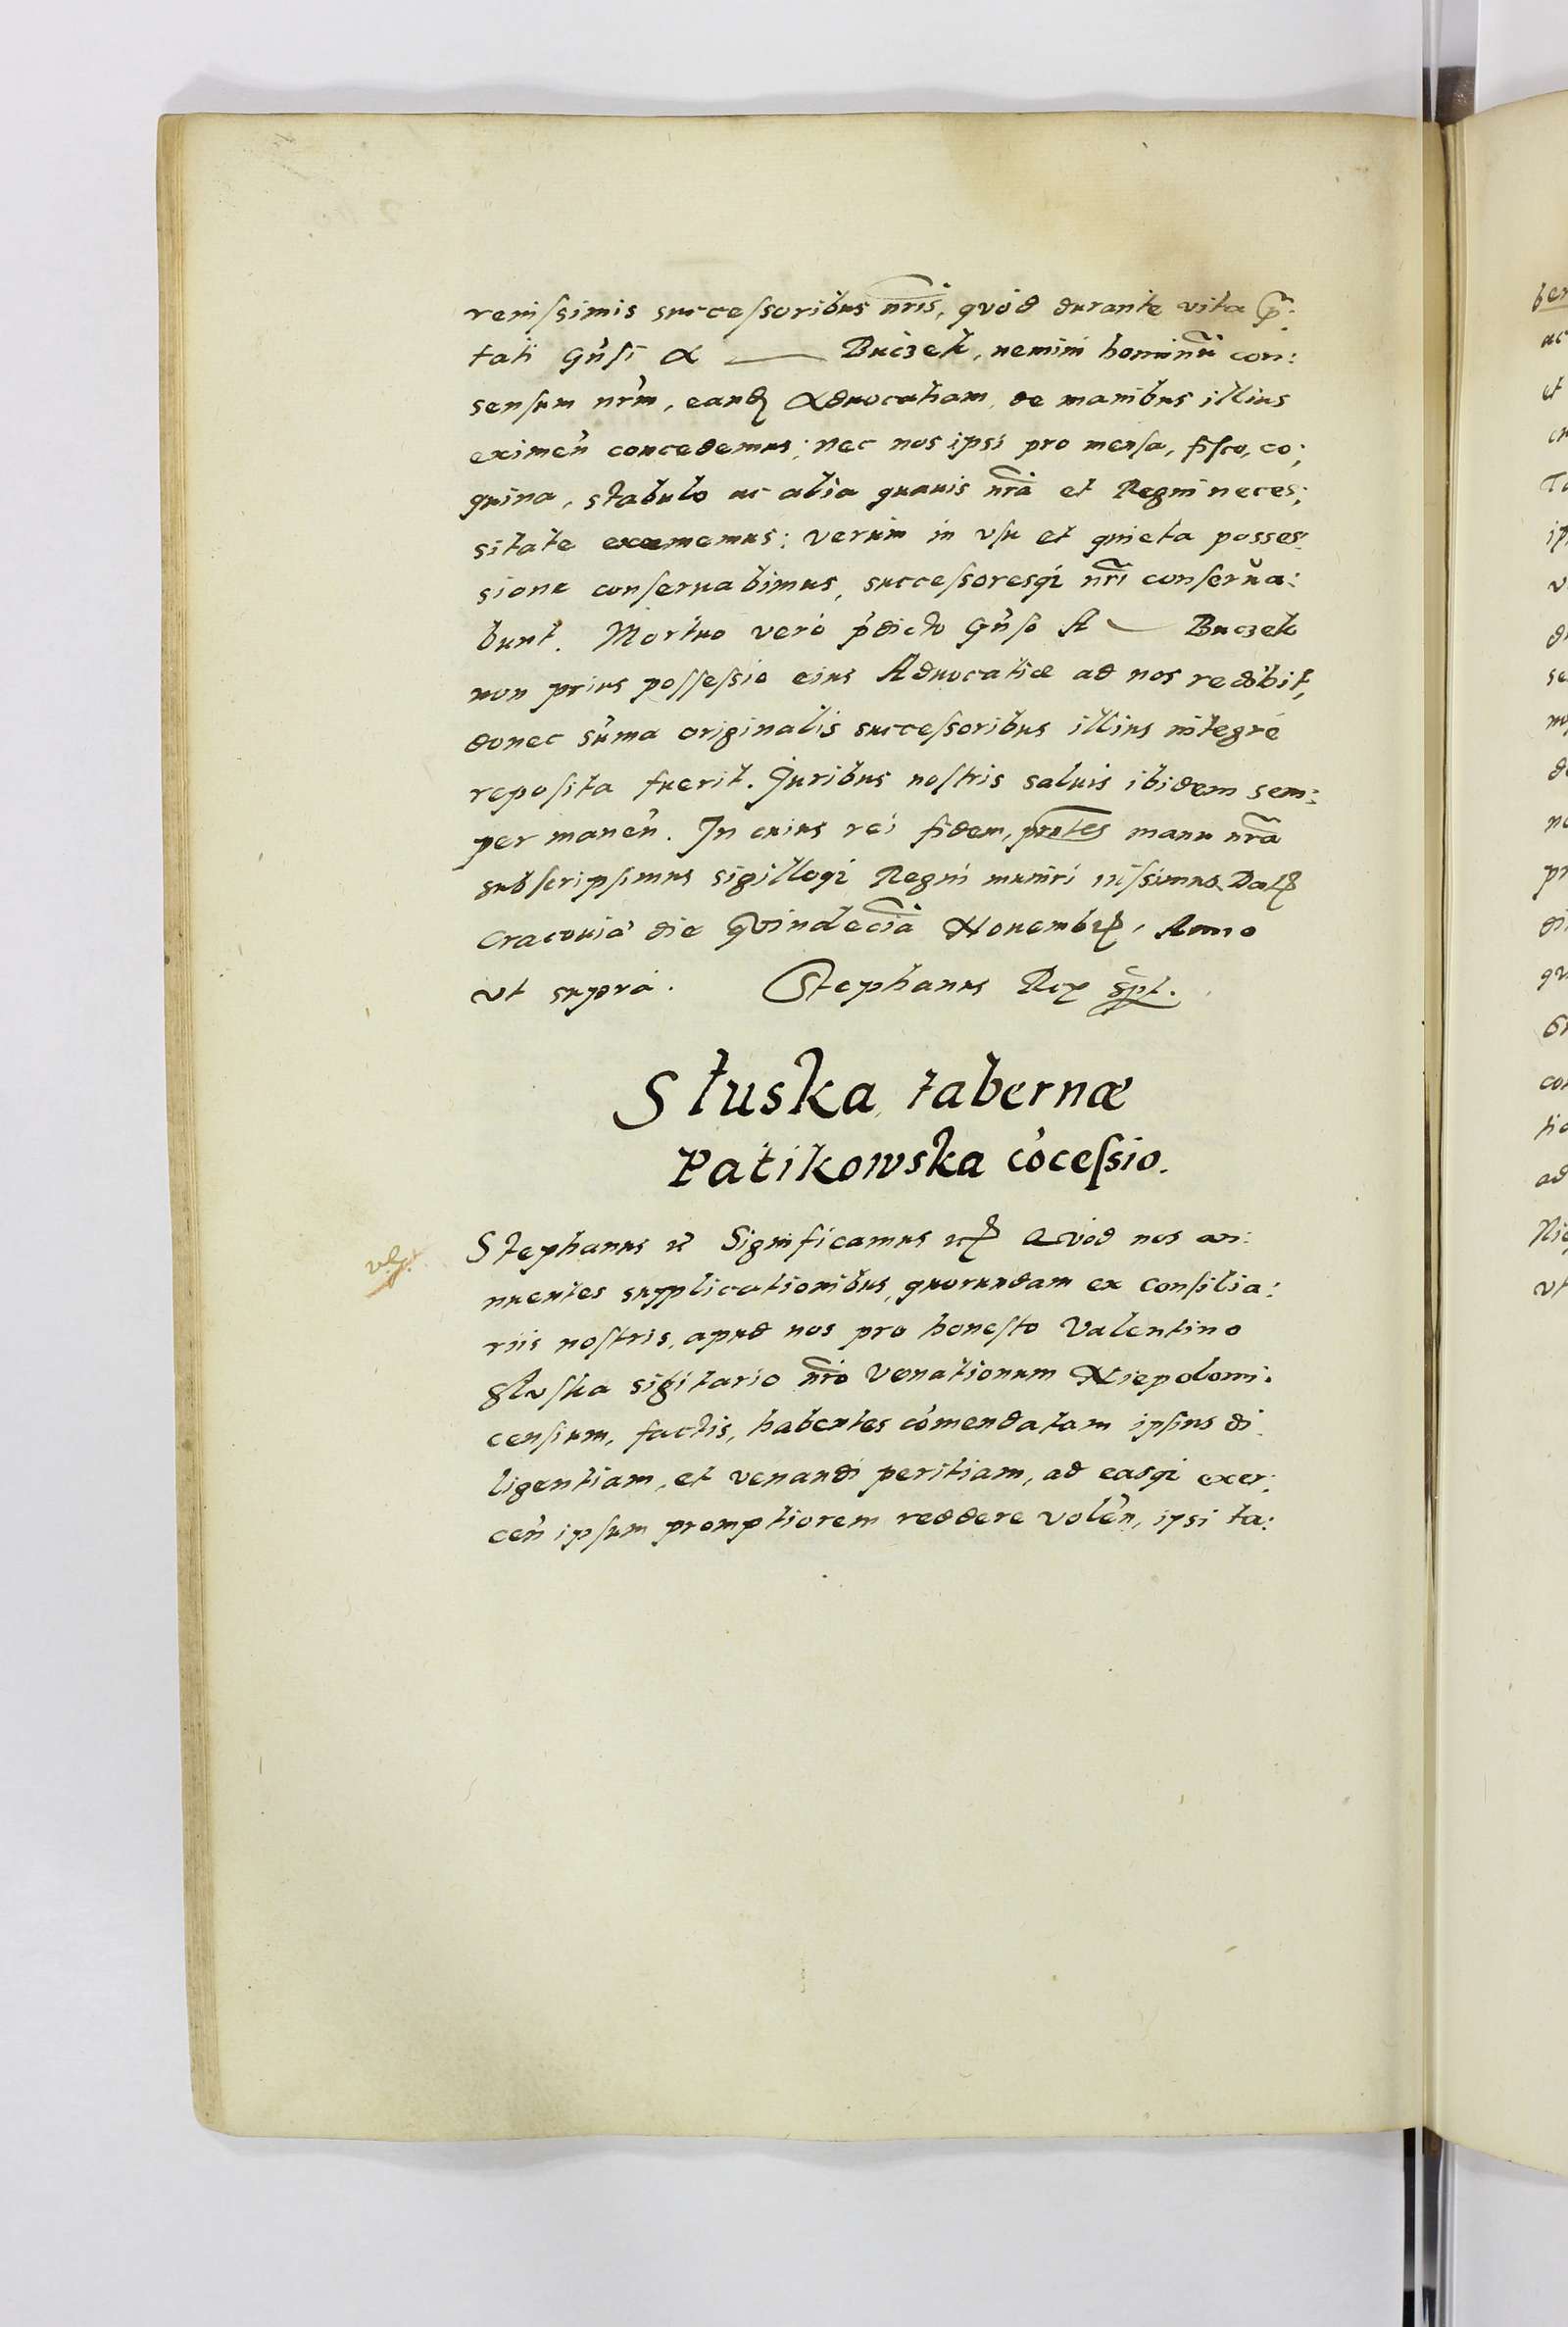 renissimis successoribus nris, quod durante vita p̃:
tati Gn̄si A — Buczek, nemini hominū con:
sensum nr̄m, eandē Aduocatiam, de manibus illius
eximen̄ concedemus; nec nos ipsi pro mensa, fisco, co:
quina, stabulo ac alia quauis nr̄a et Regni neces:
sitate exememus: verum in vsu et quieta posses:
sione conseruabimus, successoresq; nr̄i conserua:
bunt. Mortuo verò p̄dicto Gn̄so A — Buczek
non prius possessio eius Aduocatiæ ad nos redibit,
donec sum̄a originalis successoribus illius integrè
reposita fuerit. Juribus nostris saluis ibidem sem:
per manen̄. In cuius rei fidem, prn̄tes manu nr̄a
subscripsimus sigilloq; Regni muniri iussimus. Dat
Cracouiæ die quindecīa Nouembr, Anno
vt suprà. Stephanus Rex sspt.
Słuska tabernæ
Patikowska cōcessio.
Stephanus &c Significamus &c Quod nos an:
nuentes supplicationibus, quorundam ex Consilia:
riis nostris, apud nos pro honesto Valentino
Sluska sigitario nr̄o Venationum Niepolomi:
censium, factis, habentes com̄endatam ipsius di
ligentiam, et venandi peritiam, ad easq; exer:
cen̄ ipsum promptiorem reddere volen̄, ipsi ta: